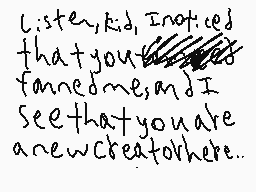 Listen, kid, I noticed
that you
fanned me, and I
see that you are
a new creator here..